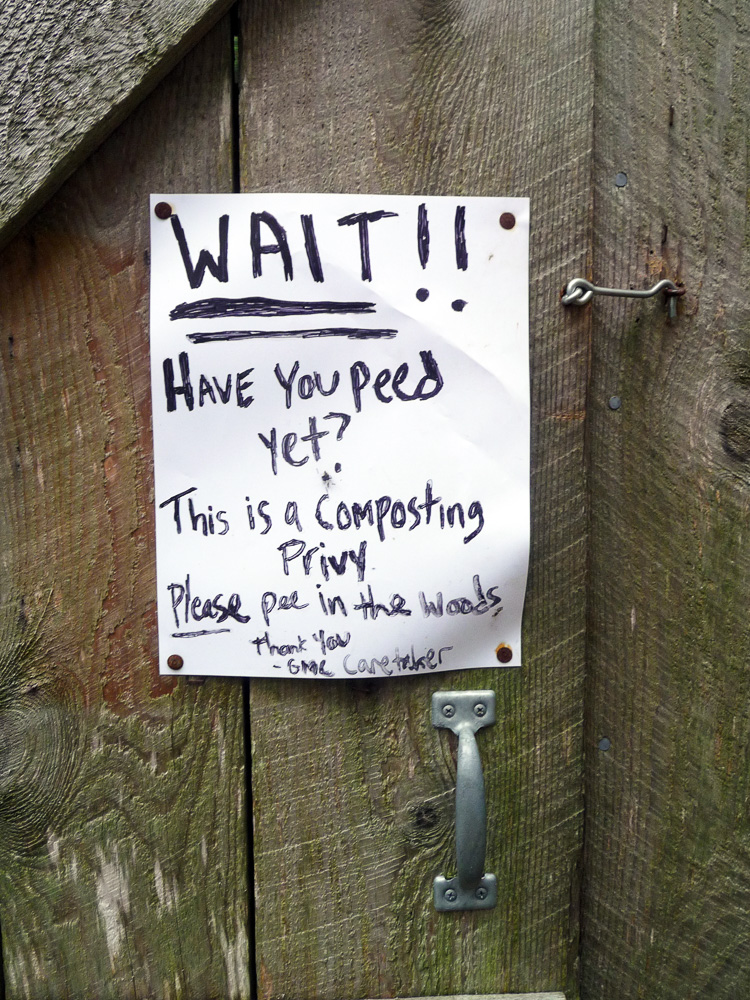 WAIT!!
HAVE You peed
yet?
This is a Composting
Privy
Please pee in the woods
Thank You
- GMC Caretaker